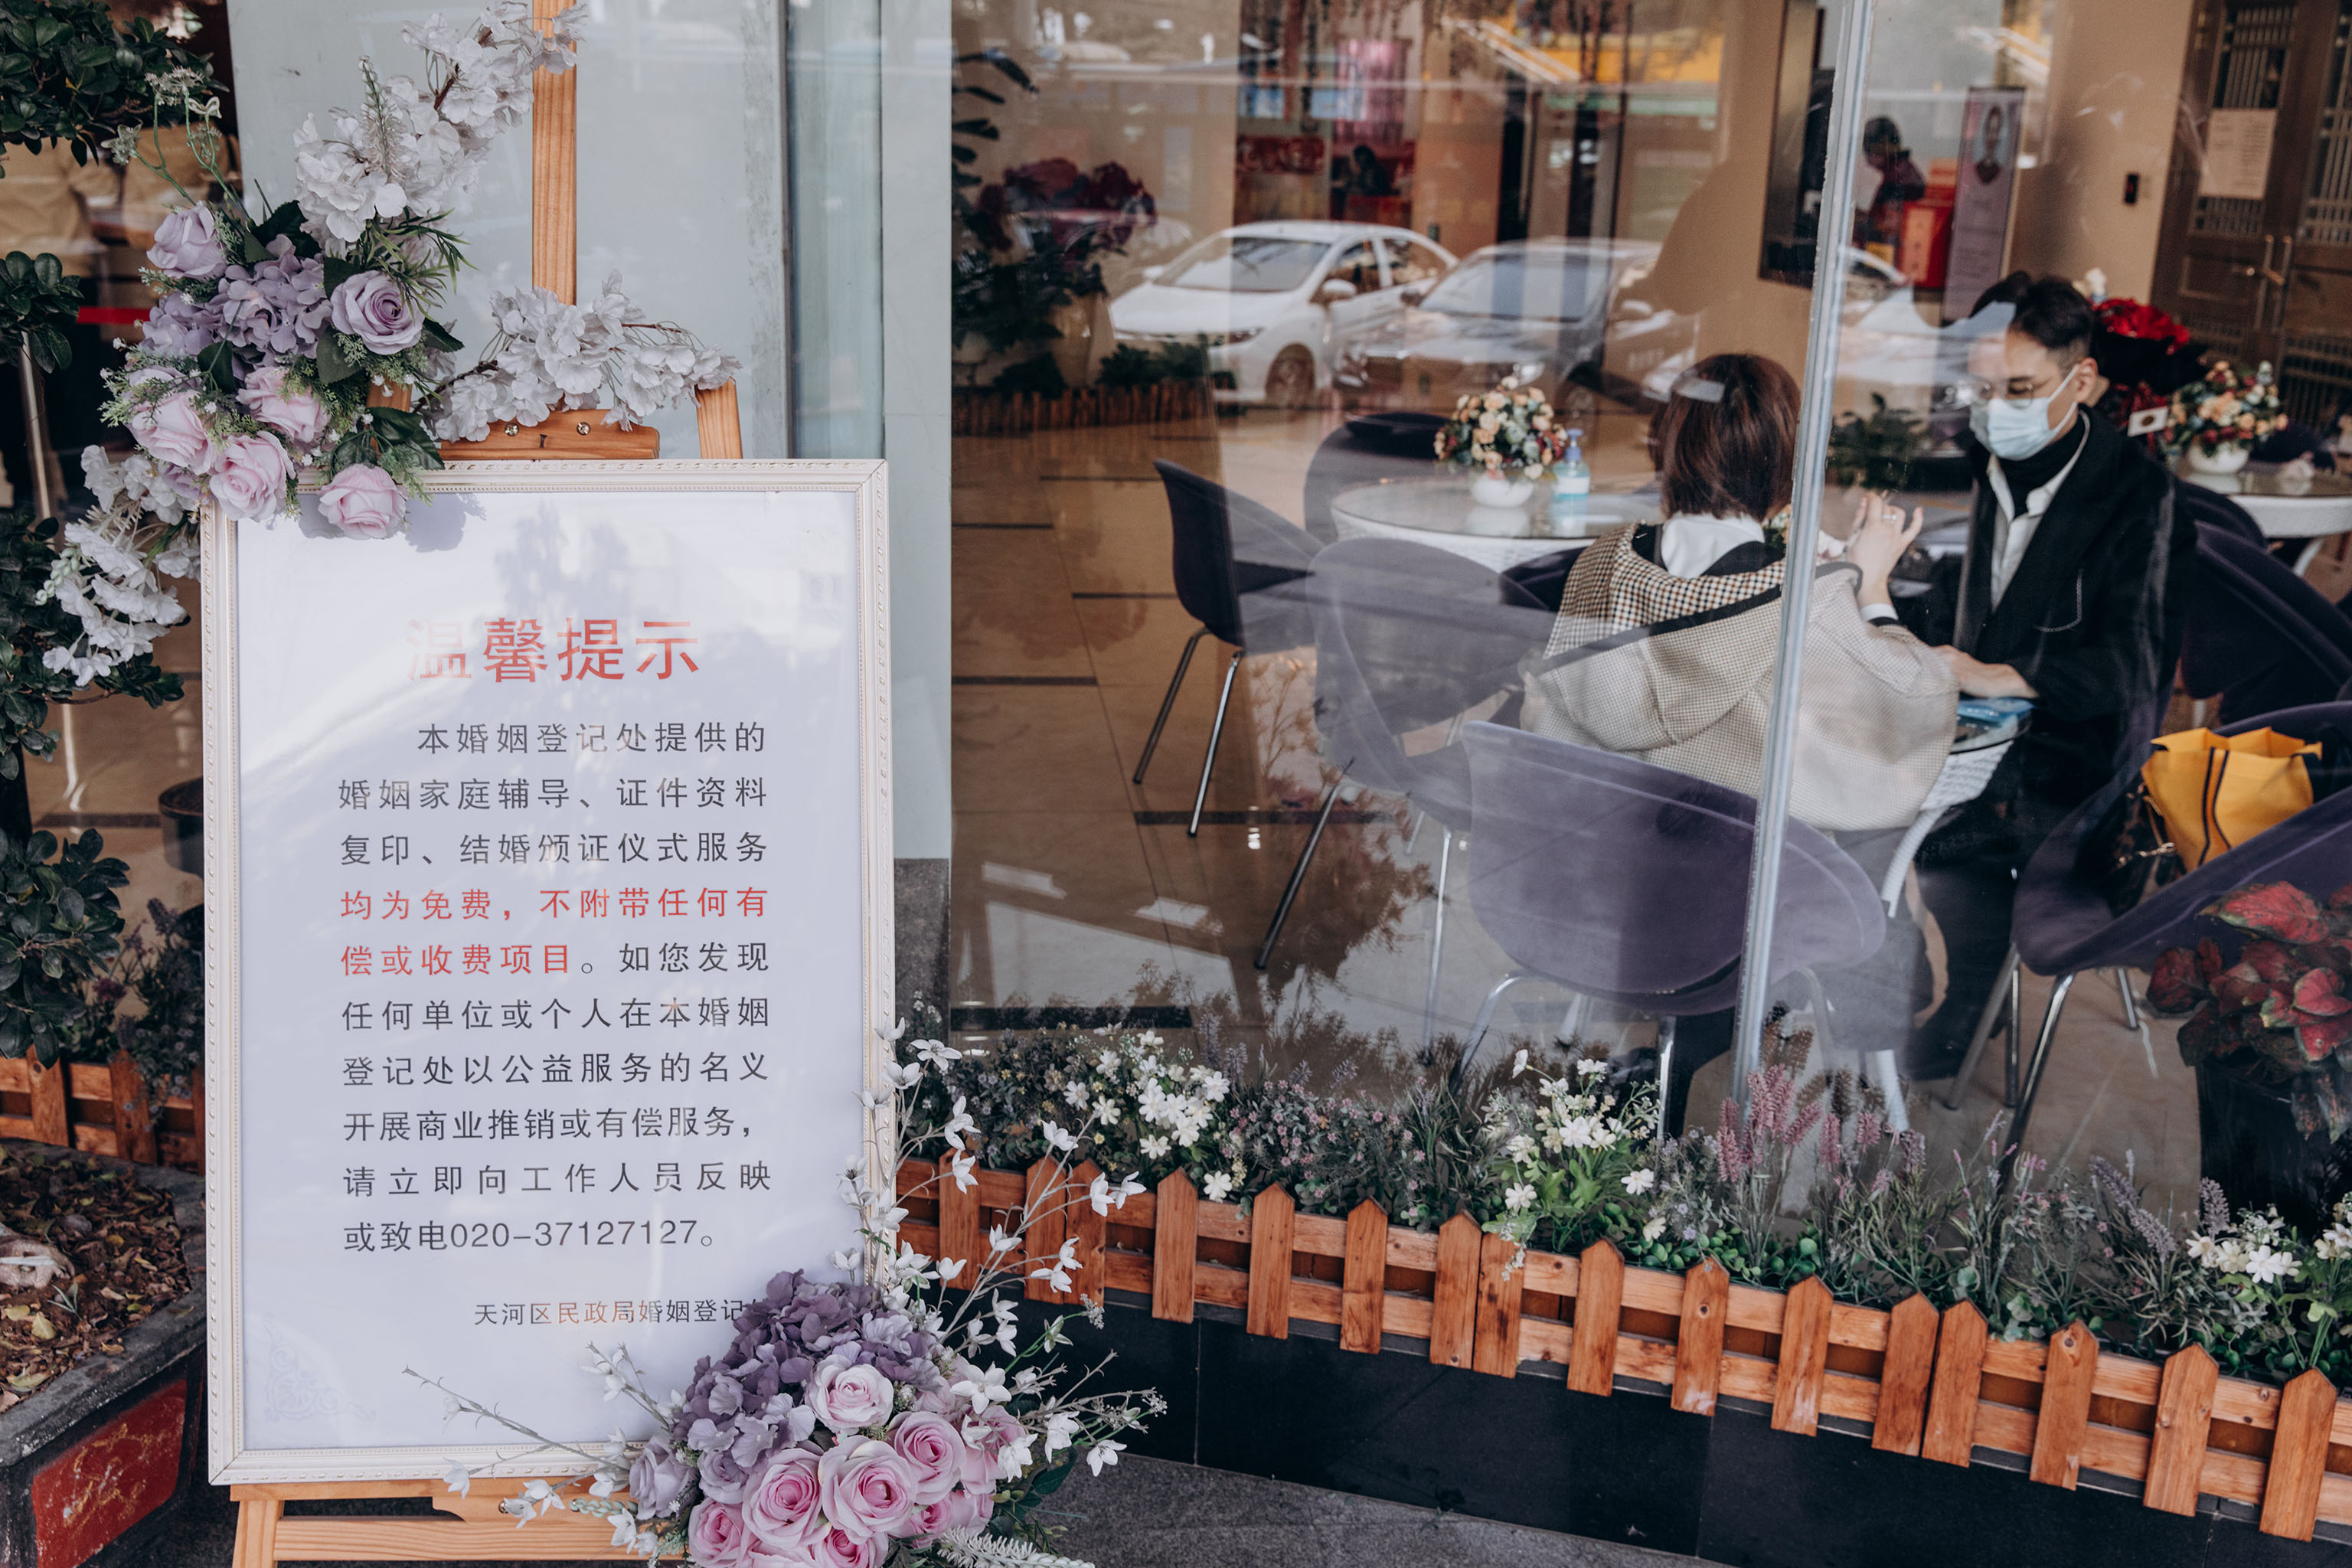 温馨提示
本婚姻登记处提供的
婚姻家庭辅导、证件资料
复印、结婚颁证仪式服务
均为免费，不附带任何有
偿或收费项目。如您发现
任何单位或个人在本婚姻
登记处以公益服务的名义
开展商业推销或有偿服务，
请立即向工作人员反映
或致电020-37127127。
天河区民政局婚姻登记